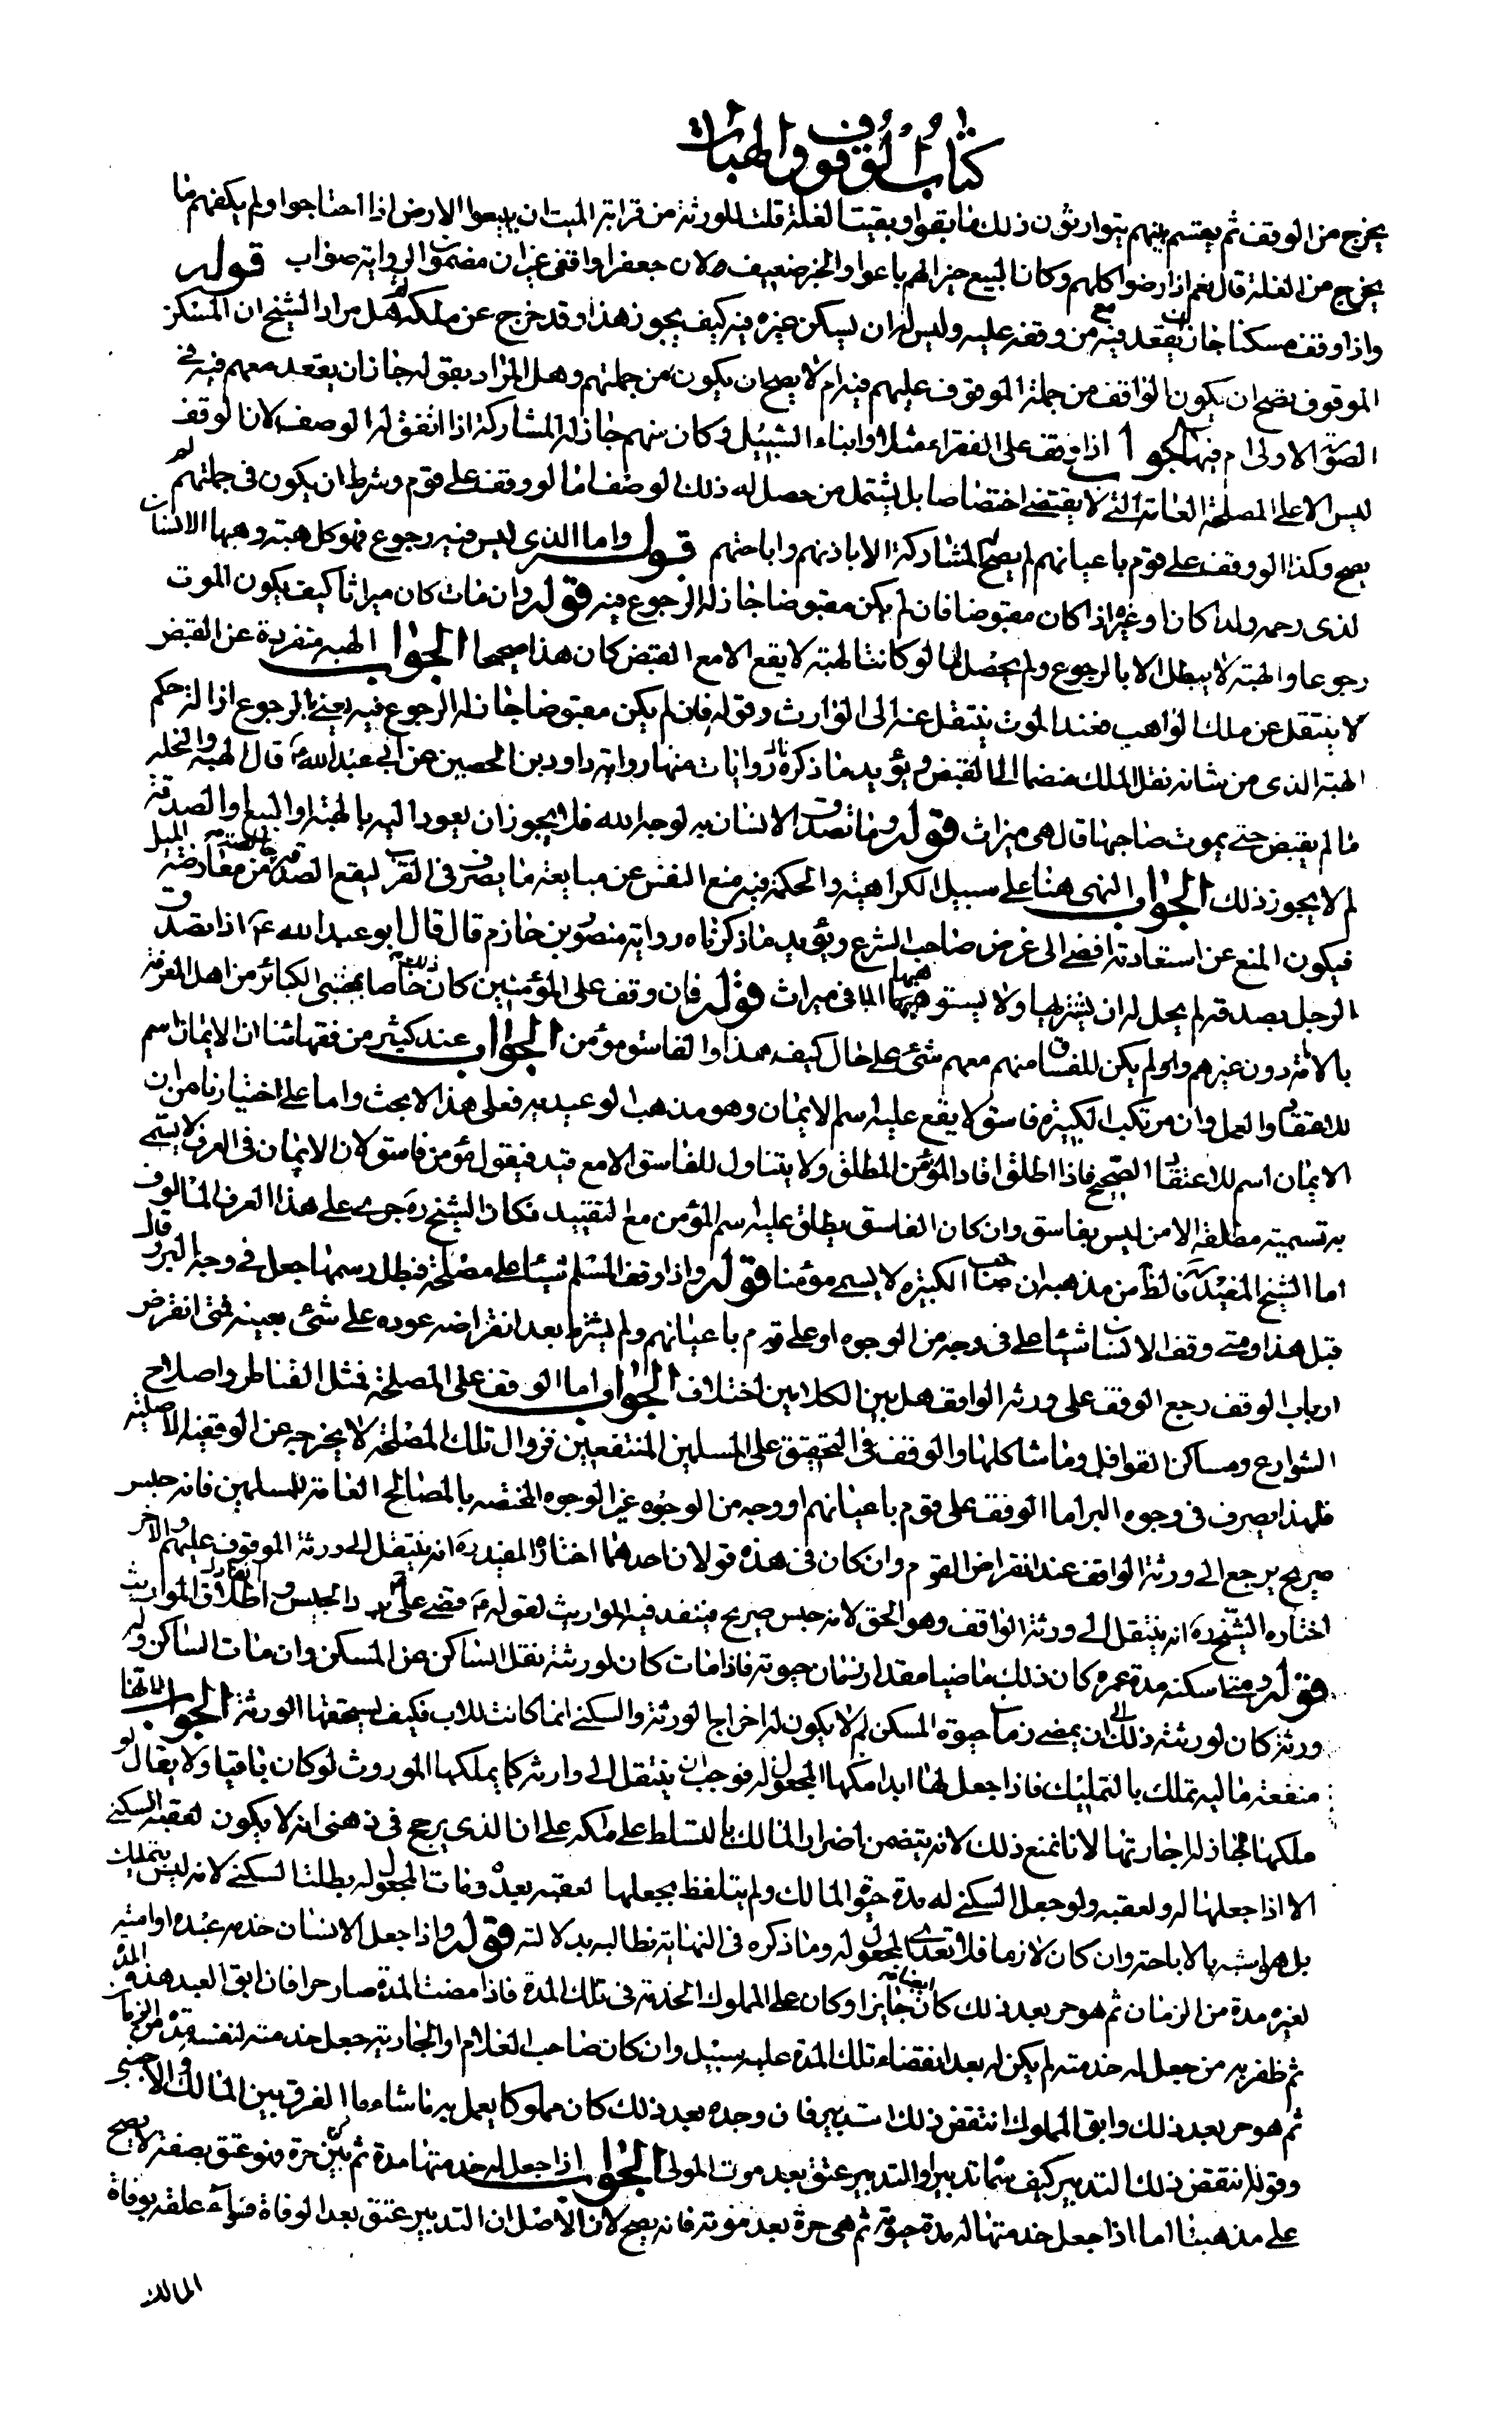 كتاب الوقوف والهبات
يخرج من الوقف ثم يقتسم بينهم يتوارثون ذلك ما بقوا وبقيت الغلة قلت للورثة من قرابة الميت ان يبيعوا الارض اذا احتاجوا ولم يكفهم ما
يخرج من الغلة قال نعم اذا رضوا كلهم وكان البيع خيرا لهم باعوا والخبر ضعيف لان جعفرا واقفي غير ان مضمون الرواية صواب قوله
واذا وقف مسكنا جاز ان يقعد فيه مع من وقفه عليه وليس له ان يسكن غيره فيه كيف يجوز هذا وقد خرج عن ملكه وهل مراد الشيخ ان المسكن
الموقوف يصح ان يكون الواقف من جملة الموقوف عليهم فيه ام لا يصح ان يكون من جملتهم وهل المراد بقوله جاز ان يقعد معهم فيه في
الصورة الاولى ام فيهما الجواب اذا وقف على الفقراء مثلا او ابناء السبيل وكان منهم جاز له المشاركة اذا اتفق له الوصف لان الوقف
ليس الا على المصلحة العامة التي لا يقتضي اختصاصا بل يشتمل من حصل له ذلك الوصف اما لو وقف على قوم وشرط ان يكون في جملتهم لم
يصح وكذا لو وقف على قوم باعيانهم لم يصح المشاركة الا باذنهم واباحتهم قوله واما الذي ليس فيه رجوع فهو كل هبة وهبها الانسان
لذي رحمه ولدا كان او غيره اذا كان مقبوضا فان لم يكن مقبوضا جاز له الرجوع فيه قوله وان مات كان ميراثا كيف يكون الموت
رجوعا والهبة لا يبطل الا بالرجوع ولم يحصل اما لو كانت الهبة لا يقع الا مع القبض كان هذا صحيحا الجواب الهبة متفردة عن القبض
لا ينتقل عن ملك الواهب فعند الموت ينتقل عنه الى الوارث وقوله فان لم يكن مقبوضا جاز له الرجوع فيه يعني بالرجوع ازالة حكم
الهبة الذي من شانه نقل الملك منضما الى القبض ويؤيد ما ذكره روايات منها رواية داود بن الحصين عن ابي عبد الله ع قال الهبة والنحلة
ما لم يقبض حتى يموت صاحبها قال هي ميراث قوله وما تصدق الانسان به لوجه الله فلا يجوز ان يعود اليه بالهبة او البيع او الصدقة
لم لا يجوز ذلك الجواب النهي هنا على سبيل الكراهية والحكمة فيه منع النفس عن مبايعة ما يصرف في القرب ليقع الصدقة خالصة من معارضة الميل
فيكون المنع عن استعادته افضى الى غرض صاحب الشرع ويؤيد ما ذكرناه رواية منصور بن حازم قال قال ابو عبد الله ع اذا تصدق
الرجل بصدقة لم يحل له ان يشتريها ولا يستوهبها الا في ميراث قوله فان وقف على المؤمنين كان ذلك خاصا بمجتنبي الكبائر من اهل المعرفة
بالائمة دون غيرهم ولم يكن للفساق منهم معهم شئ على حال كيف هذا والفاسق مؤمن الجواب عند كثير من فقهائنا ان الايمان اسم
للاعتقاد والعمل وان مرتكب الكبيرة فاسق لا يقع عليه اسم الايمان وهو مذهب الوعيدية فعلى هذا لا بحث واما على اختيارنا من ان
الايمان اسم للاعتقاد الصحيح فاذا اطلق افاد المؤمن المطلق ولا يتناول للفاسق الا مع قيد فيقول مؤمن فاسق لان الايمان في العرف لا يسمى
به تسمية مطلقة الا من ليس بفاسق وان كان الفاسق يطلق عليه اسم المؤمن مع التقييد فكان الشيخ ره جرى على هذا العرف المالوف
اما الشيخ المفيد ره فالظ من مذهبه ان صاحب الكبيرة لا يسمى مؤمنا قوله واذا وقف المسلم شيئا على مصلحة فبطل رسمها جعل في وجه البر وقال
قبل هذا ومتى وقف الانسان شيئا على في وجه من الوجوه او على قوم باعيانهم ولم يشترط بعد انقراضه عوده على شئ بعينه فمتى انقرض
ارباب الوقف رجع الوقف على ورثة الواقف هل بين الكلامين اختلاف الجواب اما الوقف على المصلحة فمثل القناطر واصلاح
الشوارع ومساكن القوافل وما شاكلها والوقف في التحقيق على المسلمين المنتفعين فزوال تلك المصلحة لا يخرجه عن الوقفية الاصلية
فلهذا يصرف في وجوه البر اما الوقف على قوم باعيانهم او وجه من الوجوه غير الوجوه المختصة بالمصالح العامة للمسلمين فانه حبس
صريح يرجع الى ورثة الواقف عند انقراض القوم وان كان في هذه قولان احدهما اختاره المفيد ره انه ينتقل الى ورثة الموقوف عليهم والاخر
اختاره الشيخ ره انه ينتقل الى ورثة الواقف وهو الحق لانه حبس صريح فينفد فيه المواريث لقوله ع قضى علي ع برد الحبيس وانفاذ المواريث
قوله ومتى اسكنه مدة عمره كان ذلك ماضيا مقدار زمان حيوته فاذا مات كان لورثته نقل الساكن عن المسكن وان مات الساكن وله
ورثة كان لورثته ذلك الى ان يمضي زمان حيوة المسكن لم لا يكون له اخراج الورثة والسكنى انما كانت للاب فكيف يستحقها الورثة الجواب لانها
منفعة مالية تملك بالتمليك فاذا جعل لها ابدا ملكها المجعول له فوجب ان ينتقل الى وارثه كما يملكها الموروث لو كان باقيا ولا يقال لو
ملكها لجاز له اجارتها لانا نمنع ذلك لانه يتضمن اضرار المالك بالتسلط على ملكه على ان الذي يرجح في ذهني انه لا يكون لعقبه السكنى
الا اذا جعلها له ولعقبه ولو جعل السكنى له مدة حيوة المالك ولم يتلفظ بجعلها لعقبه بعده فمات المجعول له بطلت السكنى لانه ليس بتمليك
بل هو اشبه بالاباحة وان كان لازما فلا يتعدى المجعول له وما ذكره في النهاية نطالبه بدلالته قوله واذا جعل الانسان خدمة عبده او امته
لغيره مدة من الزمان ثم هو حر بعد ذلك كان ايضا جايزا وكان على المملوك الخدمة في تلك المدة فاذا مضت المدة صار حرا فان ابق العبد هذه المدة
ثم ظفر به من جعل له خدمته لم يكن له بعد انقضاء تلك المدة عليه سبيل وان كان صاحب الغلام او الجارية جعل خدمته لنفسه مدة من الزمان
ثم هو حر بعد ذلك وابق المملوك انتقض ذلك التدبير فان وجده بعد ذلك كان مملوكا يعمل به ما شاء ما الفرق بين المالك والاجنبي
وقوله انتقض ذلك التدبير كيف سماه تدبيرا والتدبير عتق بعد موت المولى الجواب اذا جعل له خدمتها مدة ثم تكون حرة فهو عتق بصفة لا يصح
على مذهبنا اما اذا جعل خدمتها له مدة حيوته ثم هي حرة بعد موته فانه يصح لان الاصل ان التدبير عتق بعد الوفاة سواء علقه بوفاة
المالك